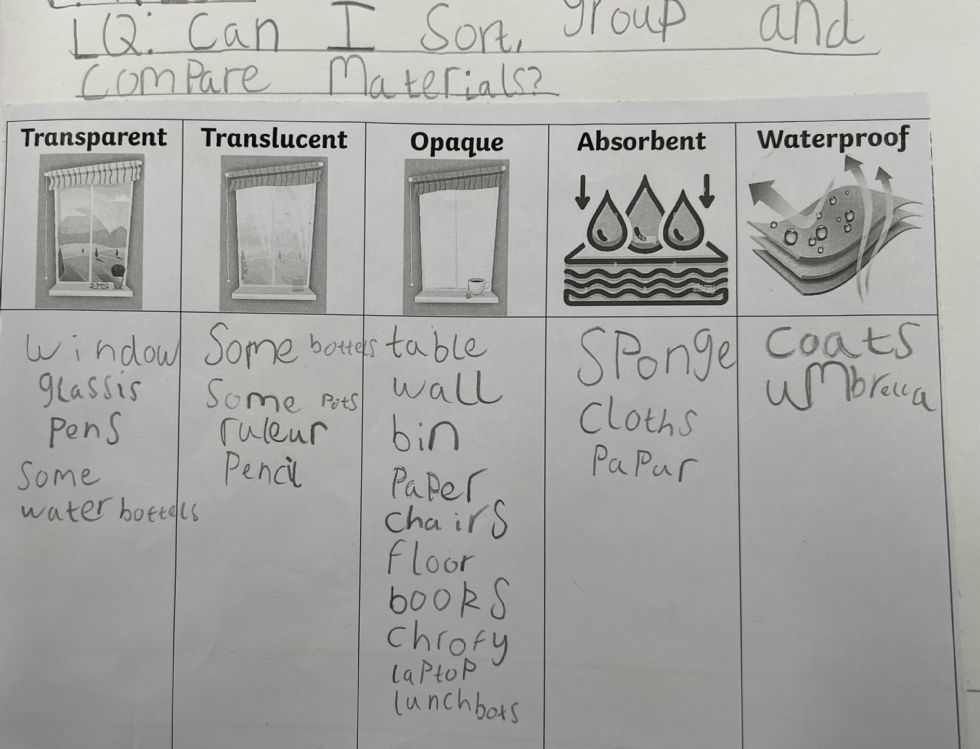 LQ: Can I Sort, group and
Compare Materials?
Transparent
Translucent
Opaque
Absorbent
Waterproof
window
glassis
pens
Some
water bottels
Some bottels
Some Pots
ruleur
Pencil
table
wall
bin
PaPer
chairs
floor
books
chrofy
laPtoP
lunchboxs
SPonge
Cloths
PaPur
Coats
umbrella